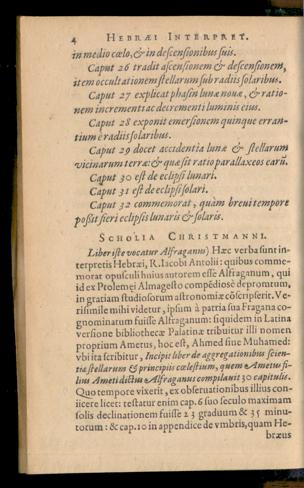 4 HEBRÆI INTERPRET.
in medio cœlo, & in descensionibus suis.
Caput 26 tradit ascensionem & descensionem,
item occultationem stellarum sub radiis solaribus.
Caput 27 explicat phasin lunæ nouæ, & ratio-
nem incrementi ac decrementi luminis eius.
Caput 28 exponit emersionem quinque erran-
tium è radiis solaribus.
Caput 29 docet accidentia lunæ & stellarum
vicinarum terræ: & quæ sit ratio parallaxeos earũ.
Caput 30 est de eclipsi lunari.
Caput 31 est de eclipsi solari.
Caput 32 commemorat, quàm breui tempore
possit fieri eclipsis lunaris & solaris.
SCHOLIA CHRISTMANNI.
Liber iste vocatur Alfraganni) Hæc verba sunt in-
terpretis Hebræi, R. Iacobi Antolii: quibus comme-
morat opusculi huius autorem esse Alfraganum, qui
id ex Ptolemęi Almagesto compēdiosè depromtum,
in gratiam studiosorum astronomiæ cōscripserit. Ve-
risimile mihi videtur, ipsum à patria sua Fragana co-
gnominatum fuisse Alfraganum: siquidem in Latina
versione bibliothecæ Palatinæ tribuitur illi nomen
proprium Ametus, hoc est, Ahmed siue Muhamed:
vbi ita scribitur, Incipit liber de aggregationibus scien-
tia stellarum & principiis cælestium, quem Ametus fi-
lius Ameti dictus Alfraganus compilauit 30 capitulis.
Quo tempore vixerit, ex obseruationibus illius con-
iicere licet: testatur enim cap. 6 suo seculo maximam
solis declinationem fuisse 23 graduum & 35 minu-
torum: & cap. 10 in appendice de vmbris, quam He-
bræus